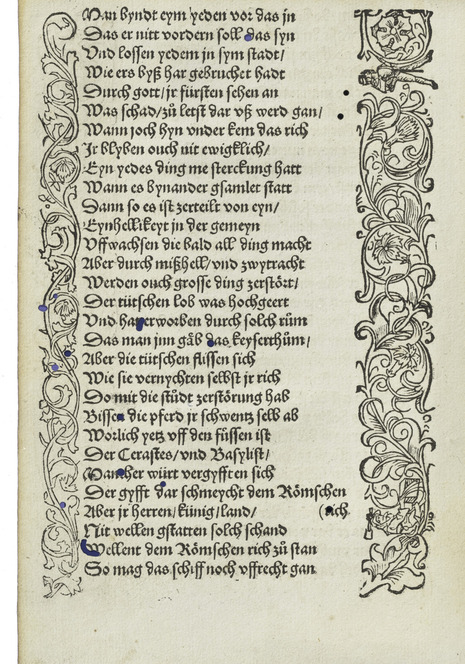 Man byndt eym yeden vor das jn
Das er nitt vordern soll das syn
Vnd lossen yedem in sym stadt/
Wie ers byß har gebruchet hadt
Durch gott/ jr fürsten sehen an
Was schad/ zů letst dar vß werd gan/
Wann joch hyn vnder kem das rich
Jr blyben ouch nit ewigklich/
Eyn yedes ding me sterckung hatt
Wann es bynander gsamlet statt
Dann so es ist zerteilt von eyn/
Eynhellikeyt jn der gemeyn
Vffwachsen die bald all ding macht
Aber durch mißhell/ vnd zwytracht
Werden ouch grosse ding zerstört/
Der tütschen lob was hochgeert
Vnd hat erworben durch solch rům
Das man jnn gäb das keyserthům/
Aber die tütschen flissen sich
Wie sie vernychten selbst jr rich
Do mit die stůdt zerstörung hab
Bissen die pferd jr schwentz selb ab
Worlich yetz vff den füssen ist
Der Cerastes/ vnd Basylist/
Mancher würt vergyfften sich
Der gyfft dar schmeycht dem Römschen
Aber jr herren/ künig/ land/ (rich
Nit wellen gstatten solch schand
Wellent dem Römschen rich zů stan
So mag das schiff noch vffrecht gan